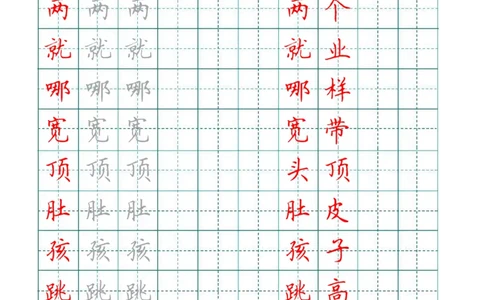 两 两 两 两 个
就 就 就 就 业
哪 哪 哪 哪 样
宽 宽 宽 宽 带
顶 顶 顶 头 顶
肚 肚 肚 肚 皮
孩 孩 孩 孩 子
跳 跳 跳 跳 高